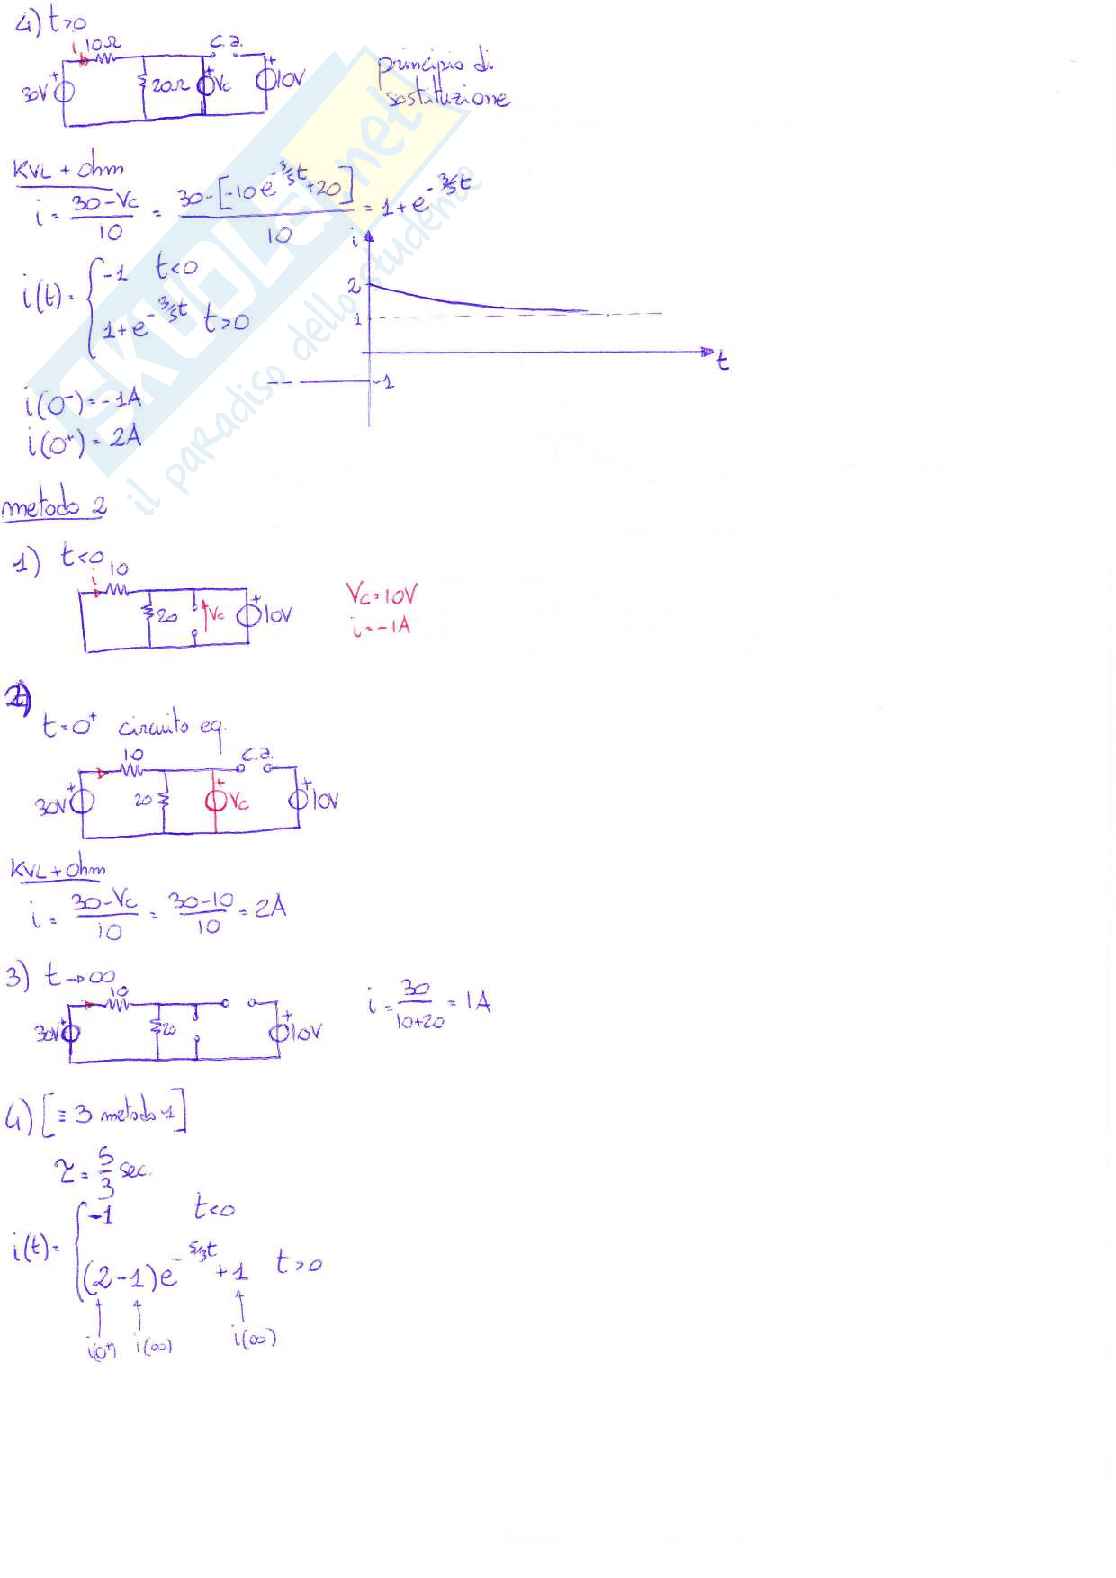 4) t>0
i 10Ω c.a.
30V + 20Ω + Vc + 10V
principio di
sostituzione
KVL + Ohm
i = 30-Vc / 10 = 30-[-10e^-3/5t+20] / 10 = 1+e^-3/5t
i(t) = { -1 t<0
1+e^-3/5t t>0
i
2
1
-1
t
i(0⁻) = -1A
i(0⁺) = 2A
metodo 2
1) t<0
i 10
20 Vc + 10V
Vc=10V
i=-1A
2)
t=0⁺ circuito eq.
10 c.a.
30V + 20 + Vc + 10V
KVL + Ohm
i = 30-Vc / 10 = 30-10 / 10 = 2A
3) t→∞
10
30V + 20 + 10V
i = 30 / 10+20 = 1A
4) [≡ 3 metodo 1]
τ = 5/3 sec.
i(t) = { -1 t<0
(2-1)e^-5/3t +1 t>0
i(0⁺) i(∞) i(∞)
SKUOLA.net
il paradiso dello studente